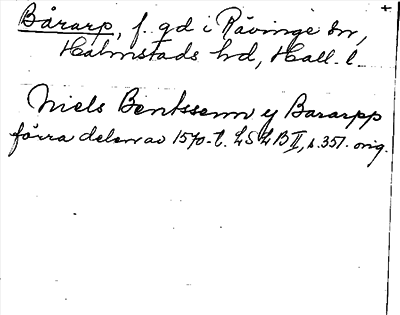 Bårarp, f. gd i Rävinge sn,
Halmstads hd, Hall. l.
Niels Bentssenn y Bararpp
förra delen av 1570-t. LSLB II, s. 351. orig.